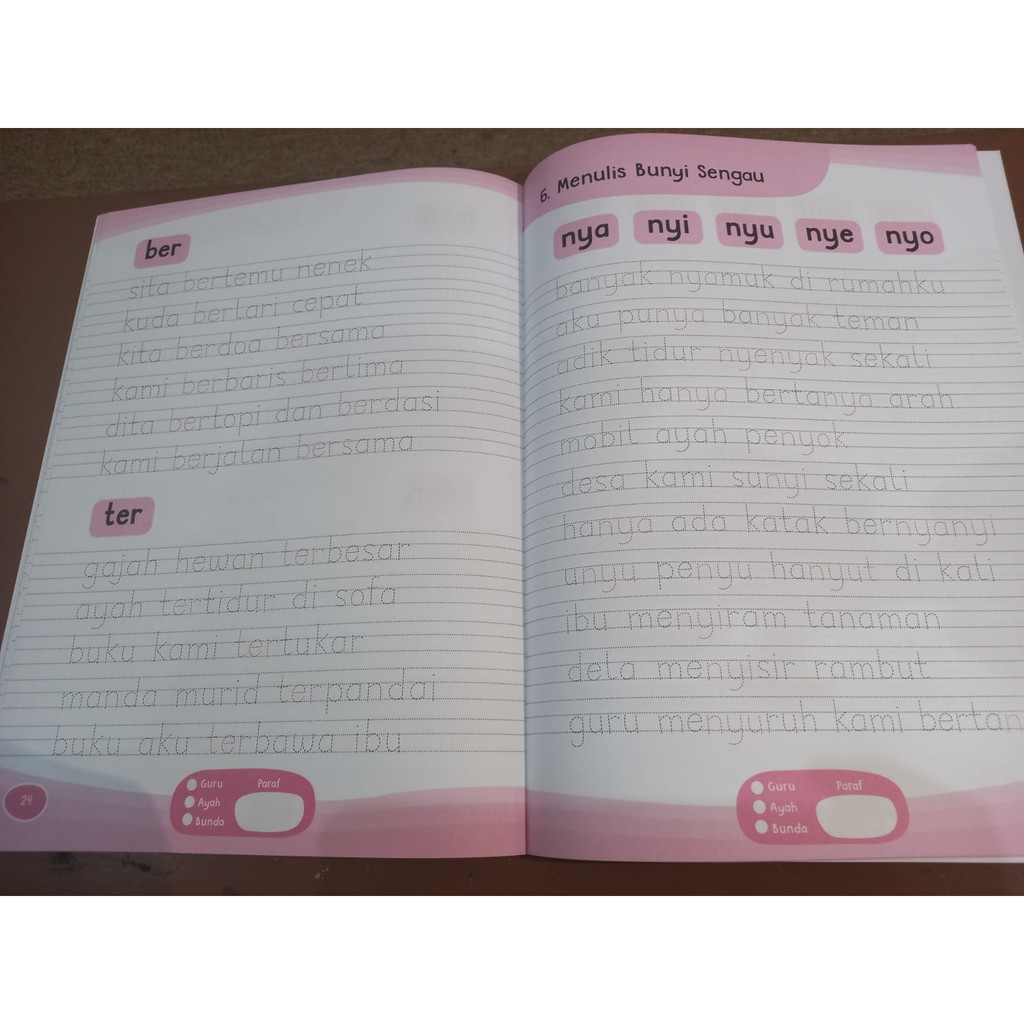 ber
sita bertemu nenek
kuda berlari cepat
kita berdoa bersama
kami berbaris berlima
dita bertopi dan berdasi
kami berjalan bersama
ter
gajah hewan terbesar
ayah tertidur di sofa
buku kami tertukar
manda murid terpandai
buku aku terbawa ibu
Guru Paraf
Ayah
Bunda
24
6. Menulis Bunyi Sengau
nya nyi nyu nye nyo
banyak nyamuk di rumahku
aku punya banyak teman
adik tidur nyenyak sekali
kami hanya bertanya arah
mobil ayah penyok
desa kami sunyi sekali
hanya ada katak bernyanyi
unyu penyu hanyut di kali
ibu menyiram tanaman
dela menyisir rambut
guru menyuruh kami bertan
Guru Paraf
Ayah
Bunda